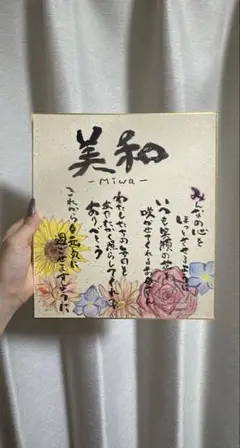 美和
-Miwa-
みんなの心を
ほっとさせるよ
いつも笑顔の花
咲かせてくれるお母さん
わたしたちの毎日を
あたたかく照らしてくれて
ありがとう
これからも元気に
過ごせますように